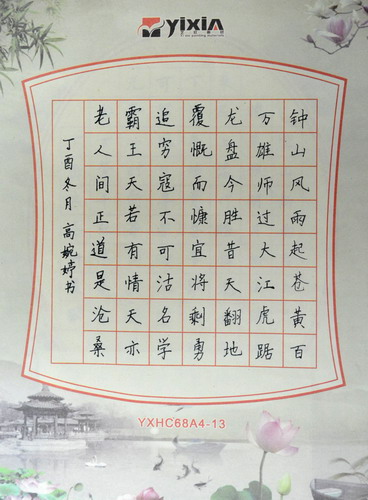 钟山风雨起苍黄百
万雄师过大江虎踞
龙盘今胜昔天翻地
覆慨而慷宜将剩勇
追穷寇不可沽名学
霸王天若有情天亦
老人间正道是沧桑
丁酉冬月 高婉婷书
YXHC68A4-13